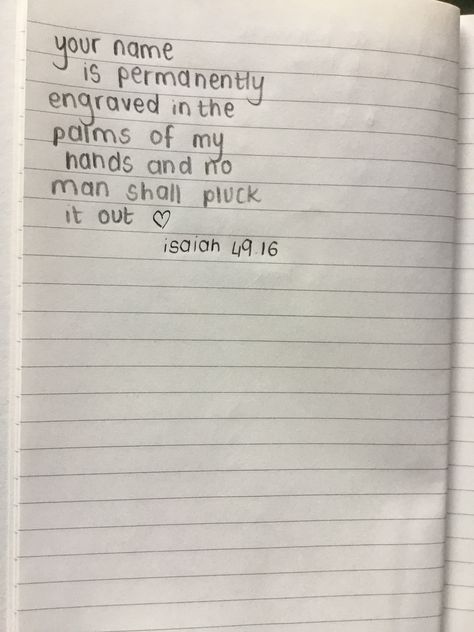 your name
is permanently
engraved in the
palms of my
hands and no
man shall pluck
it out ♡
isaiah 49.16